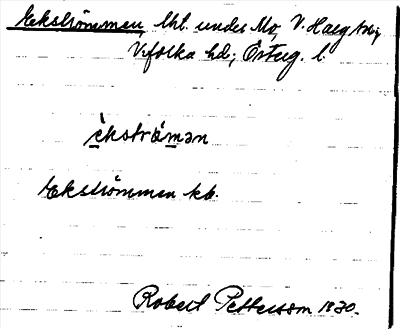 Ekströmmen, lht. under Mo, V. Harg sn;
Vifolka hd; Östug. l.
èkstrǿman
Ekströmmen kb.
Robert Pettersson 1930.